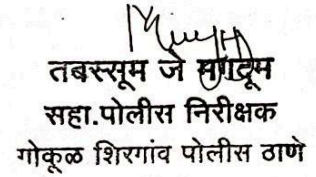 तबस्सूम जे मगदूम
सहा.पोलीस निरीक्षक
गोकूळ शिरगांव पोलीस ठाणे